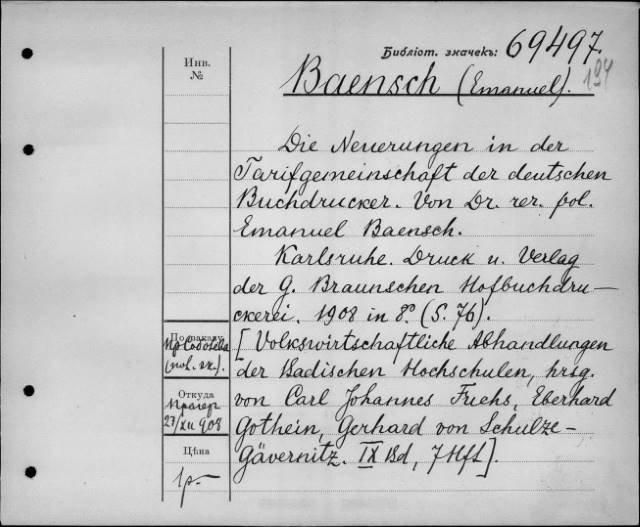 Библіот. значекъ: 69497.
194
Инв.
№
Baensch (Emanuel).
Die Neuerungen in der
Tarifgemeinschaft der deutschen
Buchdrucker. Von Dr. rer. pol.
Emanuel Baensch.
Karlsruhe. Druck u. Verlag
der G. Braunschen Hofbuchdru-
ckerei. 1908 in 8º (S. 76).
[Volkswirtschaftliche Abhandlungen
der Badischen Hochschulen, hrsg.
von Carl Johannes Fuchs, Eberhard
Gothein, Gerhard von Schulze-
Gävernitz. IX Bd, 7 Hft].
По заказу
Откуда
23/XII 908
Цѣна
1р.-